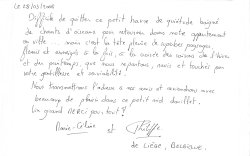 LE 28/03/2008
Difficile de quitter ce petit havre de quiétude baigné
de chants d'oiseaux pour retourner dans notre appartement
en ville ... mais c'est la tête pleine de superbes paysages
fleuris et enneigés à la fois, à la croisée des saisons de l'hiver
et des printemps, que nous repartons, ravis et touchés par
votre gentillesse et serviabilité!
Nous transmettrons l'adresse à nos amis et reviendrons avec
beaucoup de plaisir dans ce petit nid douillet.
Un grand MERCI pour tout!
Marie-Céline et Philippe
de LIÈGE, BELGIQUE.